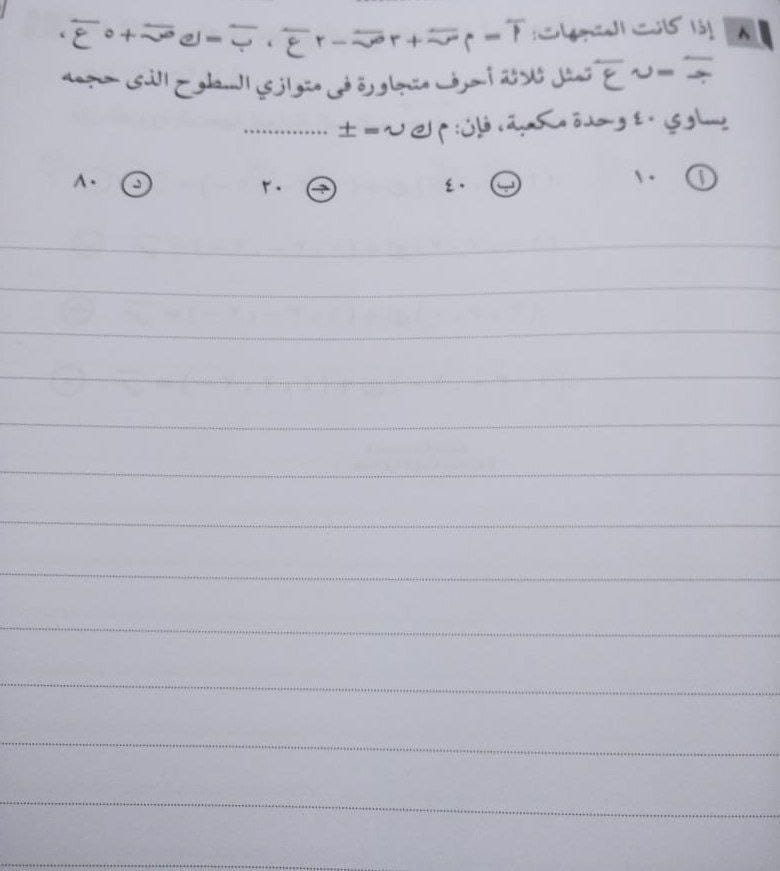 ٨ إذا كانت المتجهات: أ = م س + ٣ ص − ٢ ع ، ب = ك ص + ٥ ع ،
جـ = ن ع تمثل ثلاثة أحرف متجاورة فى متوازي السطوح الذى حجمه
يساوي ٤٠ وحدة مكعبة، فإن: م ك ن = ± ..............
أ ١٠ ب ٤٠ جـ ٢٠ د ٨٠